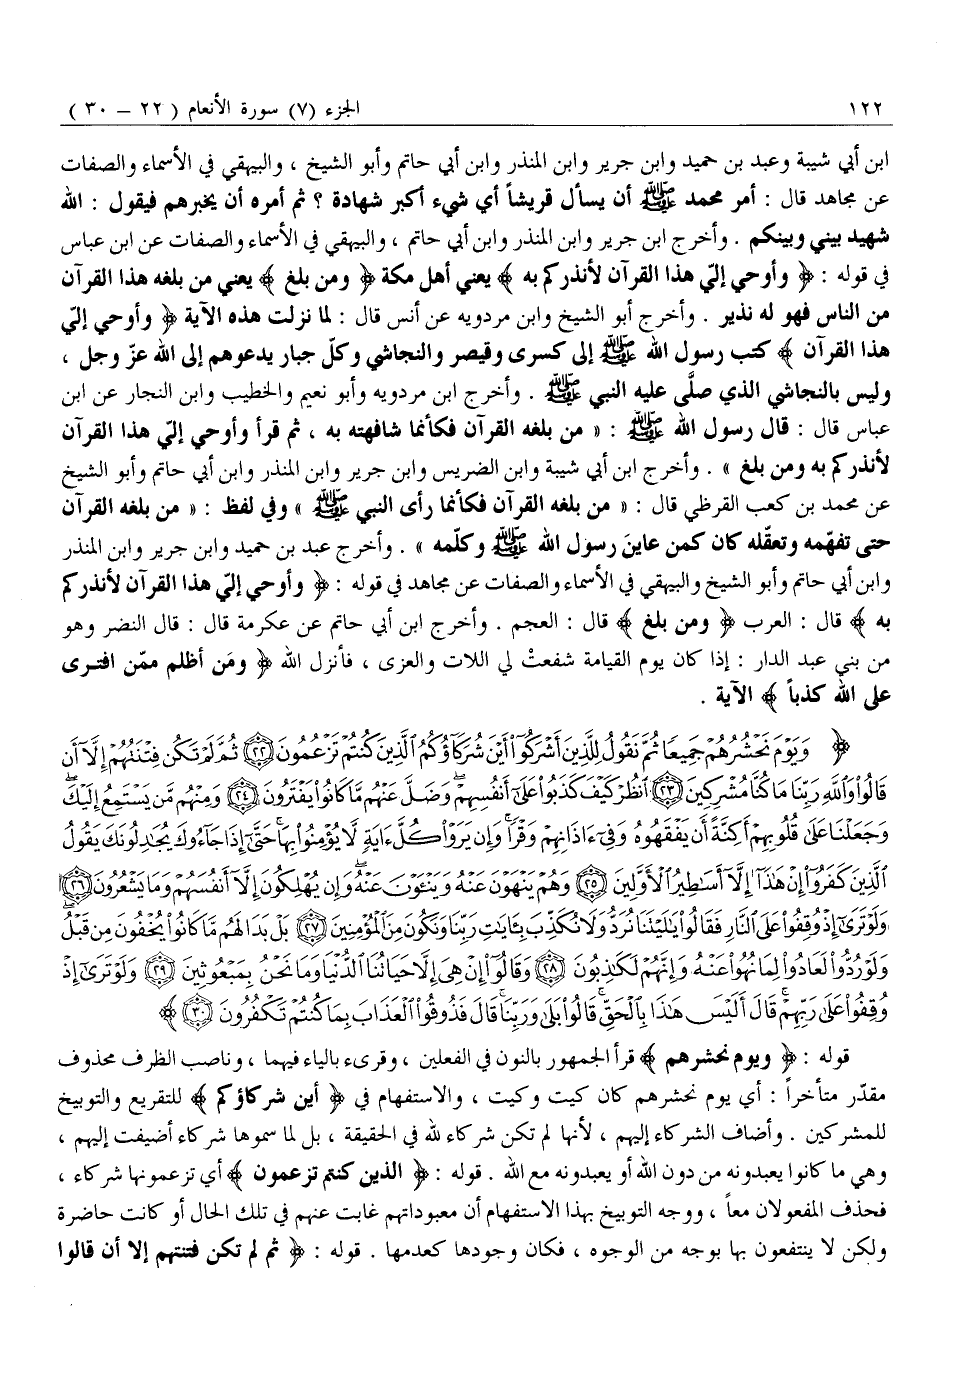 ١٢٢ الجزء (٧) سورة الأنعام ( ٢٢ – ٣٠ )
ابن أبي شيبة وعبد بن حميد وابن جرير وابن المنذر وابن أبي حاتم وأبو الشيخ ، والبيهقي في الأسماء والصفات
عن مجاهد قال : أمر محمد ﷺ أن يسأل قريشاً أي شيء أكبر شهادة ؟ ثم أمره أن يخبرهم فيقول : الله
شهيد بيني وبينكم . وأخرج ابن جرير وابن المنذر وابن أبي حاتم ، والبيهقي في الأسماء والصفات عن ابن عباس
في قوله : ﴿ وأوحي إليّ هذا القرآن لأنذركم به ﴾ يعني أهل مكة ﴿ ومن بلغ ﴾ يعني من بلغه هذا القرآن
من الناس فهو له نذير . وأخرج أبو الشيخ وابن مردويه عن أنس قال : لما نزلت هذه الآية ﴿ وأوحي إليّ
هذا القرآن ﴾ كتب رسول الله ﷺ إلى كسرى وقيصر والنجاشي وكلّ جبار يدعوهم إلى الله عزّ وجل ،
وليس بالنجاشي الذي صلَّى عليه النبي ﷺ . وأخرج ابن مردويه وأبو نعيم والخطيب وابن النجار عن ابن
عباس قال : قال رسول الله ﷺ : « من بلغه القرآن فكأنما شافهته به ، ثم قرأ وأوحي إليّ هذا القرآن
لأنذركم به ومن بلغ » . وأخرج ابن أبي شيبة وابن الضريس وابن جرير وابن المنذر وابن أبي حاتم وأبو الشيخ
عن محمد بن كعب القرظي قال : « من بلغه القرآن فكأنما رأى النبي ﷺ » وفي لفظ : « من بلغه القرآن
حتى تفهّمه وتعقّله كان كمن عاينَ رسول الله ﷺ وكلّمه » . وأخرج عبد بن حميد وابن جرير وابن المنذر
وابن أبي حاتم وأبو الشيخ والبيهقي في الأسماء والصفات عن مجاهد في قوله : ﴿ وأوحي إليّ هذا القرآن لأنذركم
به ﴾ قال : العرب ﴿ ومن بلغ ﴾ قال : العجم . وأخرج ابن أبي حاتم عن عكرمة قال : قال النضر وهو
من بني عبد الدار : إذا كان يوم القيامة شفعتْ لي اللات والعزى ، فأنزل الله ﴿ ومَن أظلم ممّن افترى
على الله كذباً ﴾ الآية .
﴿ وَيَوْمَ نَحْشُرُهُمْ جَمِيعًا ثُمَّ نَقُولُ لِلَّذِينَ أَشْرَكُوٓا۟ أَيْنَ شُرَكَآؤُكُمُ ٱلَّذِينَ كُنتُمْ تَزْعُمُونَ ﴿٢٢﴾ ثُمَّ لَمْ تَكُن فِتْنَتُهُمْ إِلَّآ أَن
قَالُوا۟ وَٱللَّهِ رَبِّنَا مَا كُنَّا مُشْرِكِينَ ﴿٢٣﴾ ٱنظُرْ كَيْفَ كَذَبُوا۟ عَلَىٰٓ أَنفُسِهِمْ ۚ وَضَلَّ عَنْهُم مَّا كَانُوا۟ يَفْتَرُونَ ﴿٢٤﴾ وَمِنْهُم مَّن يَسْتَمِعُ إِلَيْكَ ۖ
وَجَعَلْنَا عَلَىٰ قُلُوبِهِمْ أَكِنَّةً أَن يَفْقَهُوهُ وَفِىٓ ءَاذَانِهِمْ وَقْرًا ۚ وَإِن يَرَوْا۟ كُلَّ ءَايَةٍ لَّا يُؤْمِنُوا۟ بِهَا ۚ حَتَّىٰٓ إِذَا جَآءُوكَ يُجَٰدِلُونَكَ يَقُولُ
ٱلَّذِينَ كَفَرُوٓا۟ إِنْ هَٰذَآ إِلَّآ أَسَٰطِيرُ ٱلْأَوَّلِينَ ﴿٢٥﴾ وَهُمْ يَنْهَوْنَ عَنْهُ وَيَنْـَٔوْنَ عَنْهُ ۖ وَإِن يُهْلِكُونَ إِلَّآ أَنفُسَهُمْ وَمَا يَشْعُرُونَ ﴿٢٦﴾
وَلَوْ تَرَىٰٓ إِذْ وُقِفُوا۟ عَلَى ٱلنَّارِ فَقَالُوا۟ يَٰلَيْتَنَا نُرَدُّ وَلَا نُكَذِّبَ بِـَٔايَٰتِ رَبِّنَا وَنَكُونَ مِنَ ٱلْمُؤْمِنِينَ ﴿٢٧﴾ بَلْ بَدَا لَهُم مَّا كَانُوا۟ يُخْفُونَ مِن قَبْلُ ۖ
وَلَوْ رُدُّوا۟ لَعَادُوا۟ لِمَا نُهُوا۟ عَنْهُ وَإِنَّهُمْ لَكَٰذِبُونَ ﴿٢٨﴾ وَقَالُوٓا۟ إِنْ هِىَ إِلَّا حَيَاتُنَا ٱلدُّنْيَا وَمَا نَحْنُ بِمَبْعُوثِينَ ﴿٢٩﴾ وَلَوْ تَرَىٰٓ إِذْ
وُقِفُوا۟ عَلَىٰ رَبِّهِمْ ۚ قَالَ أَلَيْسَ هَٰذَا بِٱلْحَقِّ ۚ قَالُوا۟ بَلَىٰ وَرَبِّنَا ۚ قَالَ فَذُوقُوا۟ ٱلْعَذَابَ بِمَا كُنتُمْ تَكْفُرُونَ ﴿٣٠﴾ ﴾
قوله : ﴿ ويوم نحشرهم ﴾ قرأ الجمهور بالنون في الفعلين ، وقرىء بالياء فيهما ، وناصب الظرف محذوف
مقدّر متأخراً : أي يوم نحشرهم كان كيت وكيت ، والاستفهام في ﴿ أين شركاؤكم ﴾ للتقريع والتوبيخ
للمشركين . وأضاف الشركاء إليهم ، لأنها لم تكن شركاء لله في الحقيقة ، بل لما سموها شركاء أضيفت إليهم ،
وهي ما كانوا يعبدونه من دون الله أو يعبدونه مع الله . قوله : ﴿ الذين كنتم تزعمون ﴾ أي تزعمونها شركاء ،
فحذف المفعولان معاً ، ووجه التوبيخ بهذا الاستفهام أن معبوداتهم غابت عنهم في تلك الحال أو كانت حاضرة
ولكن لا ينتفعون بها بوجه من الوجوه ، فكان وجودها كعدمها . قوله : ﴿ ثم لم تكن فتنتهم إلا أن قالوا